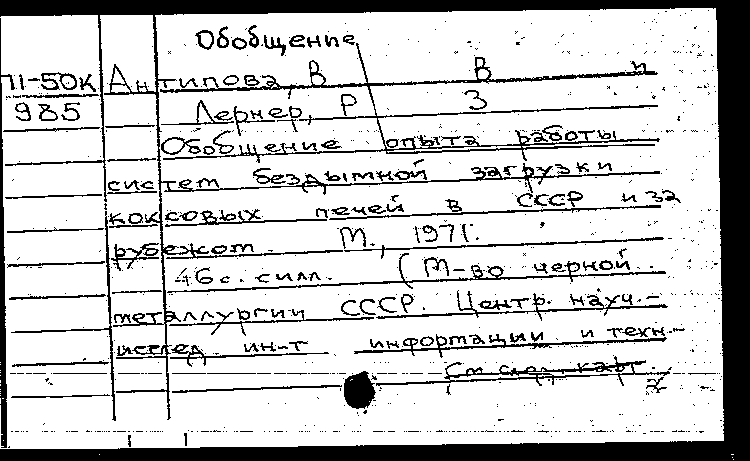 Обобщение
П-50К Антипова, В В и
985 Лернер, Р З
Обобщение опыта работы
систем бездымной загрузки
коксовых печей в СССР и за
рубежом. М., 1971.
46 с. с илл. (М-во черной
металлургии СССР. Центр. науч.-
исслед. ин-т информации и техн.-
См. след. карт.